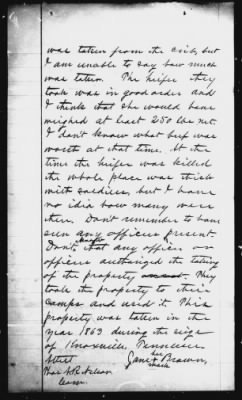 was taken from the crib, but
I am unable to say how much
was taken. The heifer they
took was in good order and
I think that she would have
weighed at least 250 lbs net.
I don't know what beef was
worth at that time. At the
time the heifer was killed
the whole place was thick
with soldiers, but I have
no idia how many were
there. Don't remember to have
seen any officers present.
Don't know that any officer or
officers authorized the taking
of the property. They
took the property to their
camps and used it. This
property was taken in the
year 1863 during the siege
of Knoxville, Tennessee.
Attest
Jane her Brown,
mark